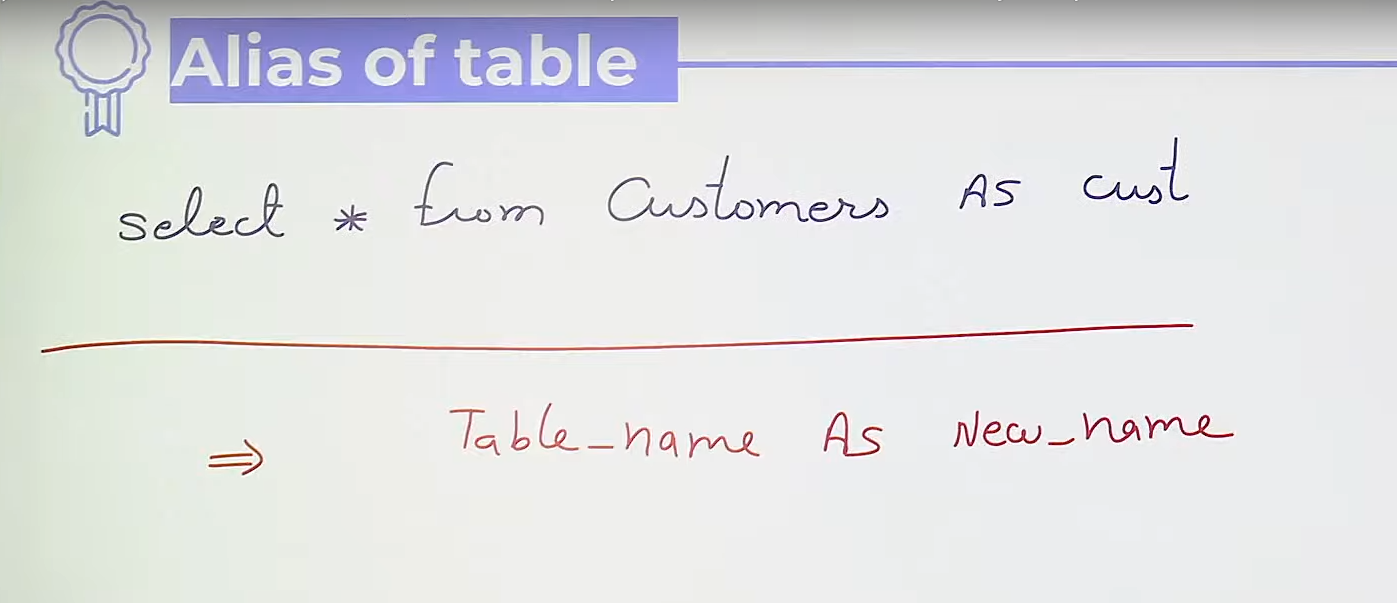 Alias of table
select * from Customers AS cust
⇒ Table_name As New_name